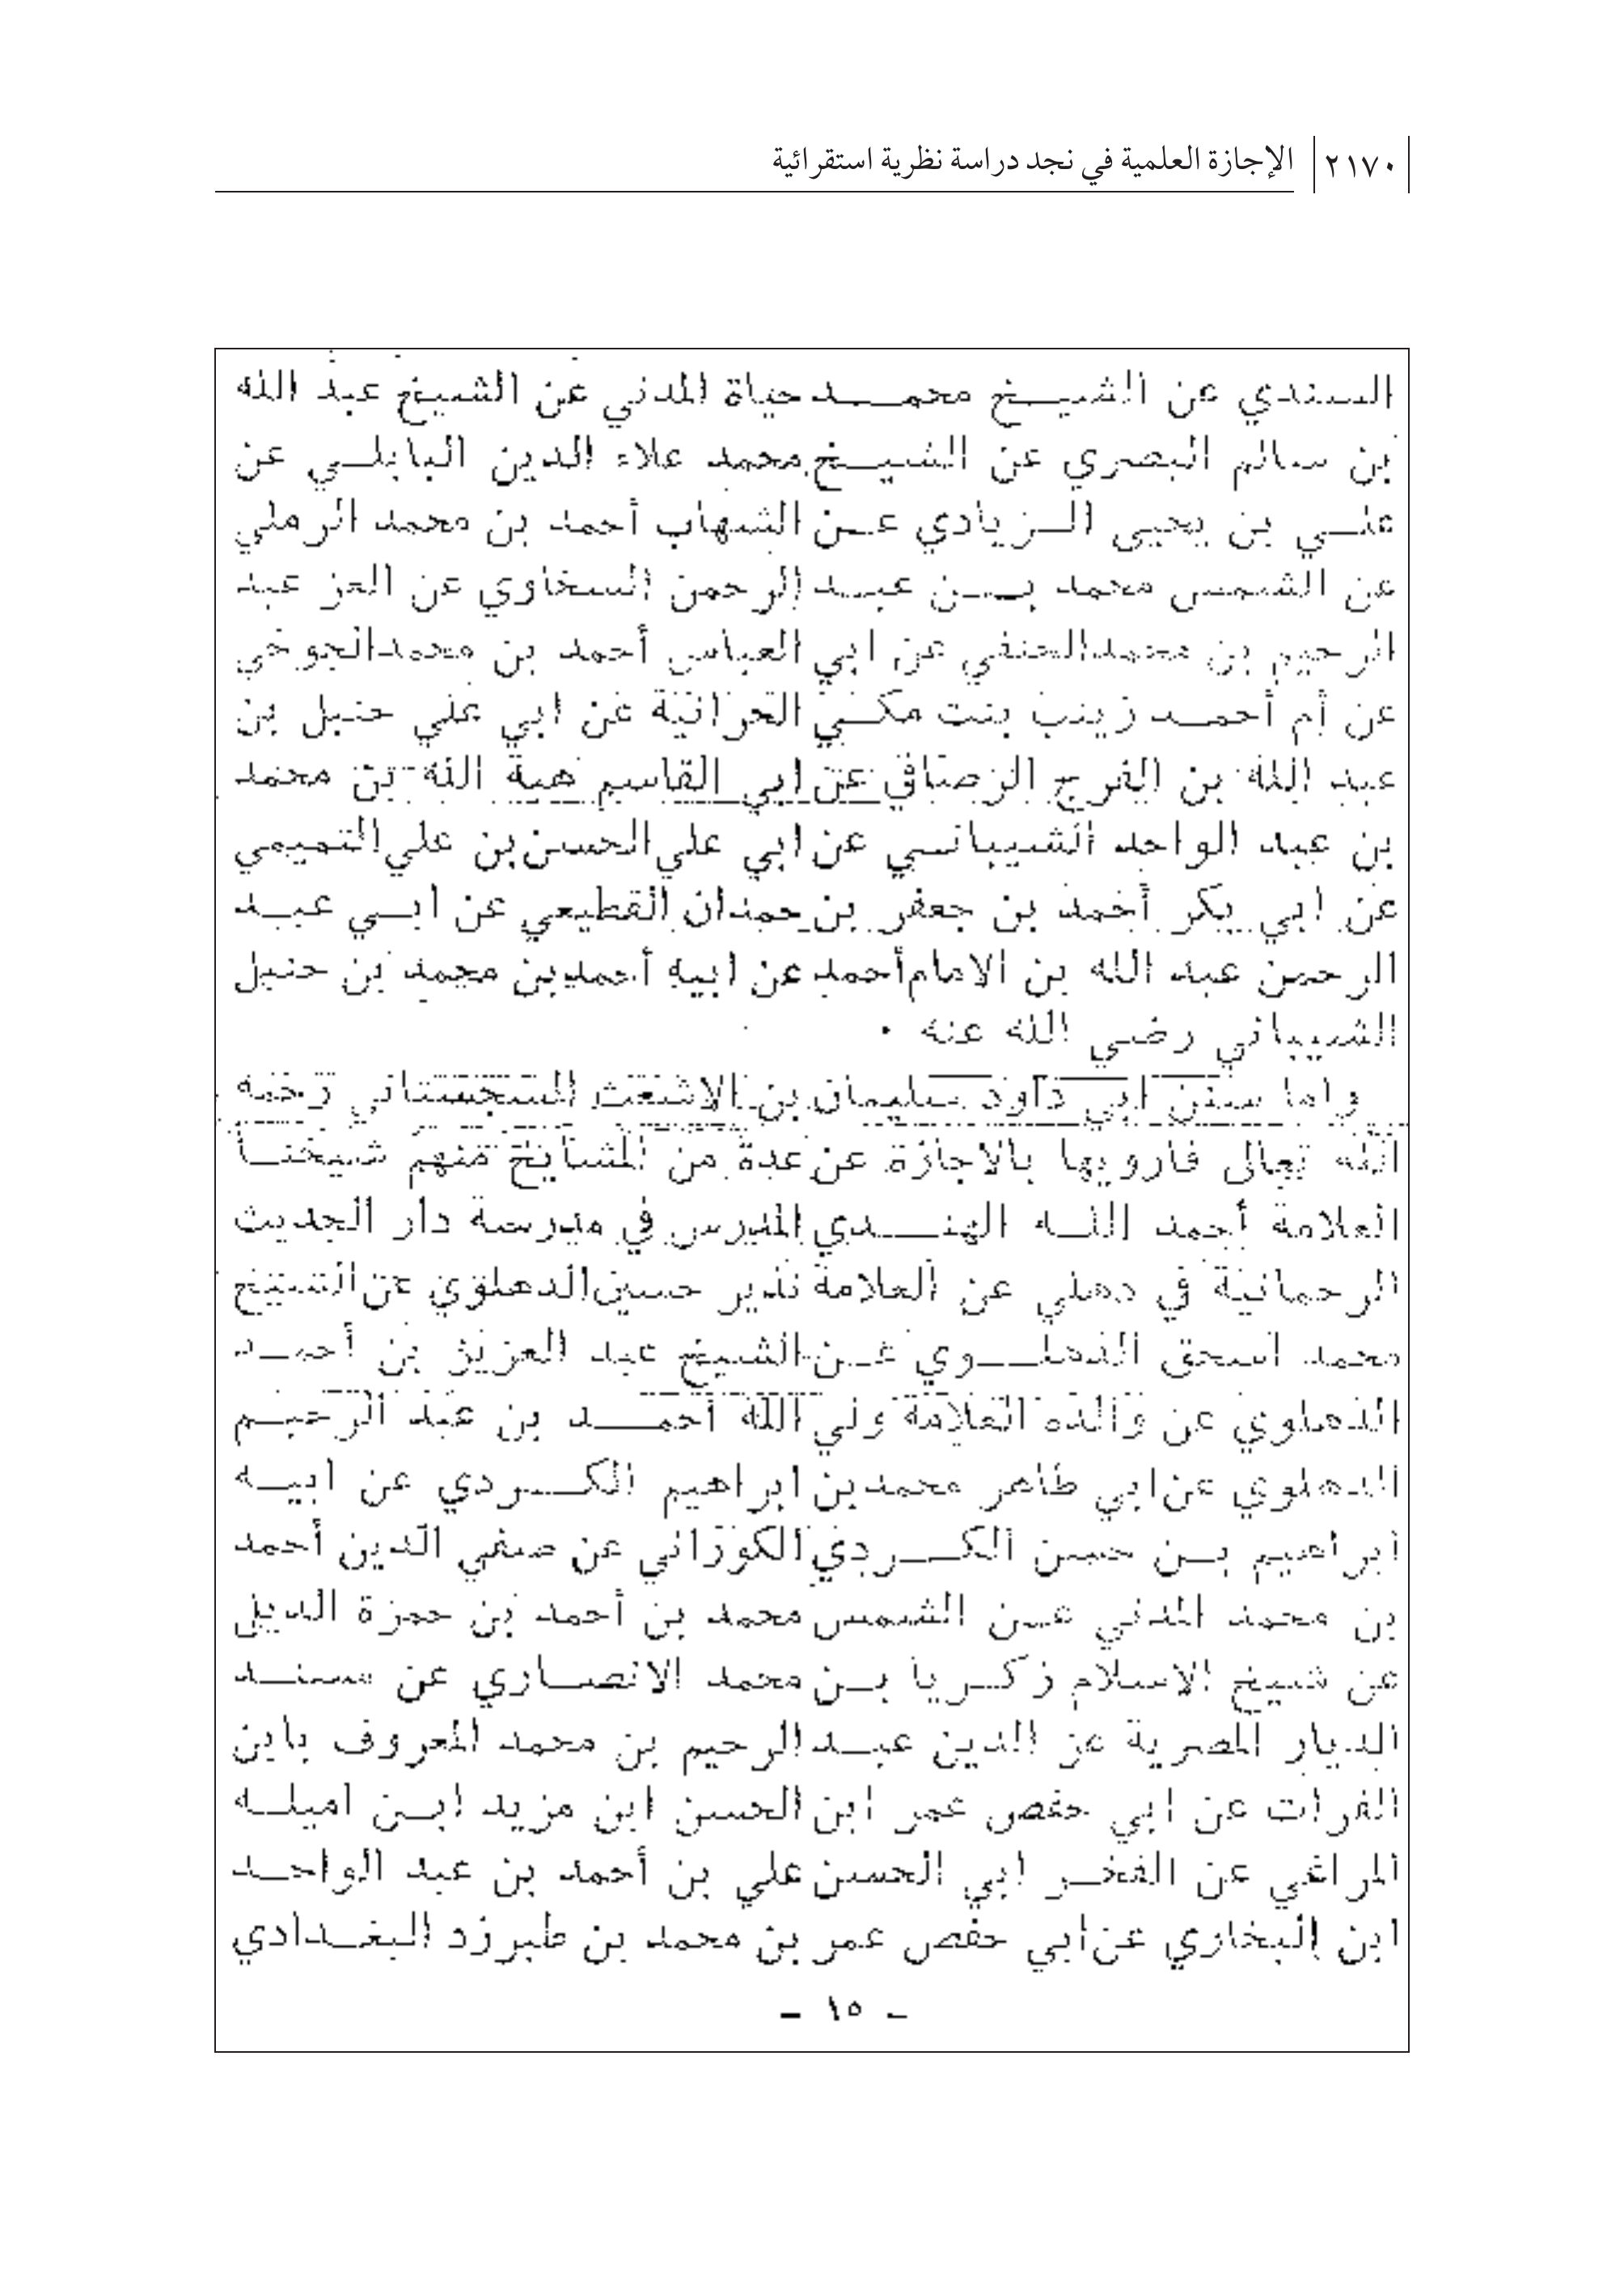 ٢١٧٠ الإجازة العلمية في نجد دراسة نظرية استقرائية
السندي عن الشيخ محمد حياة المدني عن الشيخ عبد الله
بن سالم البصري عن الشيخ محمد علاء الدين البابلي عن
علي بن يحيى الزيادي عن الشهاب أحمد بن محمد الرملي
عن الشمس محمد بن عبد الرحمن السخاوي عن العز عبد
الرحيم بن محمد الحنفي عن ابي العباس أحمد بن محمد الجوخي
عن أم أحمد زينب بنت مكي الحرانية عن ابي علي حنبل بن
عبد الله بن الفرج الرصافي عن ابي القاسم هبة الله بن محمد
بن عبد الواحد الشيباني عن ابي علي الحسن بن علي التميمي
عن ابي بكر أحمد بن جعفر بن حمدان القطيعي عن ابي عبد
الرحمن عبد الله بن الامام أحمد عن ابيه أحمد بن محمد بن حنبل
الشيباني رضي الله عنه .
واما سنن ابي داود سليمان بن الاشعث السجستاني رحمه
الله تعالى فارويها بالاجازة عن عدة من المشايخ منهم شيخنا
العلامة أحمد الله الهندي المدرس في مدرسة دار الحديث
الرحمانية في دهلي عن العلامة نذير حسين الدهلوي عن الشيخ
محمد اسحق الدهلوي عن الشيخ عبد العزيز بن أحمد
الدهلوي عن والده العلامة ولي الله أحمد بن عبد الرحيم
الدهلوي عن ابي طاهر محمد بن ابراهيم الكردي عن ابيه
ابراهيم بن حسن الكردي الكوراني عن صفي الدين أحمد
بن محمد المدني عن الشمس محمد بن أحمد بن حمزة
عن شيخ الاسلام زكريا بن محمد الانصاري عن مسند
الديار المصرية عز الدين عبد الرحيم بن محمد المعروف بابن
الفرات عن ابي حفص عمر ابن الحسن ابن مزيد ابن اميله
المراغي عن الفخر ابي الحسن علي بن أحمد بن عبد الواحد
ابن البخاري عن ابي حفص عمر بن محمد بن طبرزد البغدادي
– ١٥ –